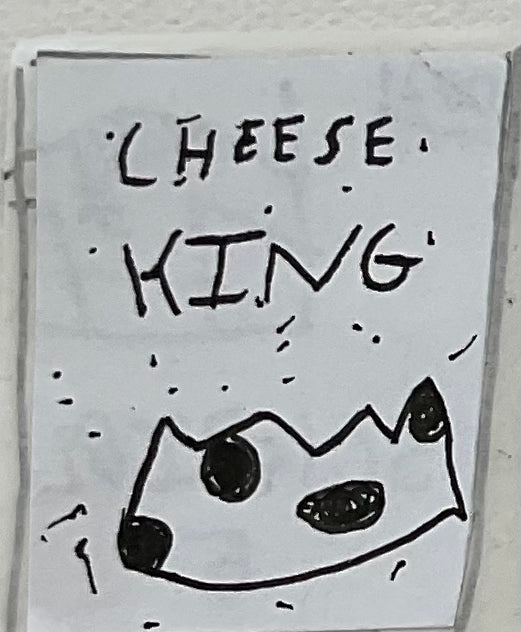 CHEESE
KING